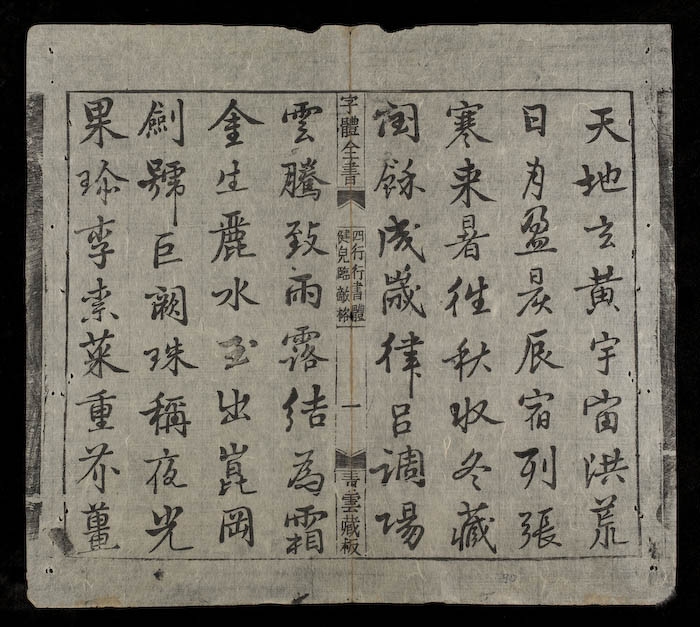 天地玄黃宇宙洪荒
日月盈昃辰宿列張
寒来暑往秋收冬藏
閏餘成歲律呂調陽
字體全書
四行行書體
健兒臨敵格
一
青雲藏板
雲騰致雨露結為霜
金生麗水玉出崑岡
劍號巨闕珠稱夜光
果珍李柰菜重芥薑